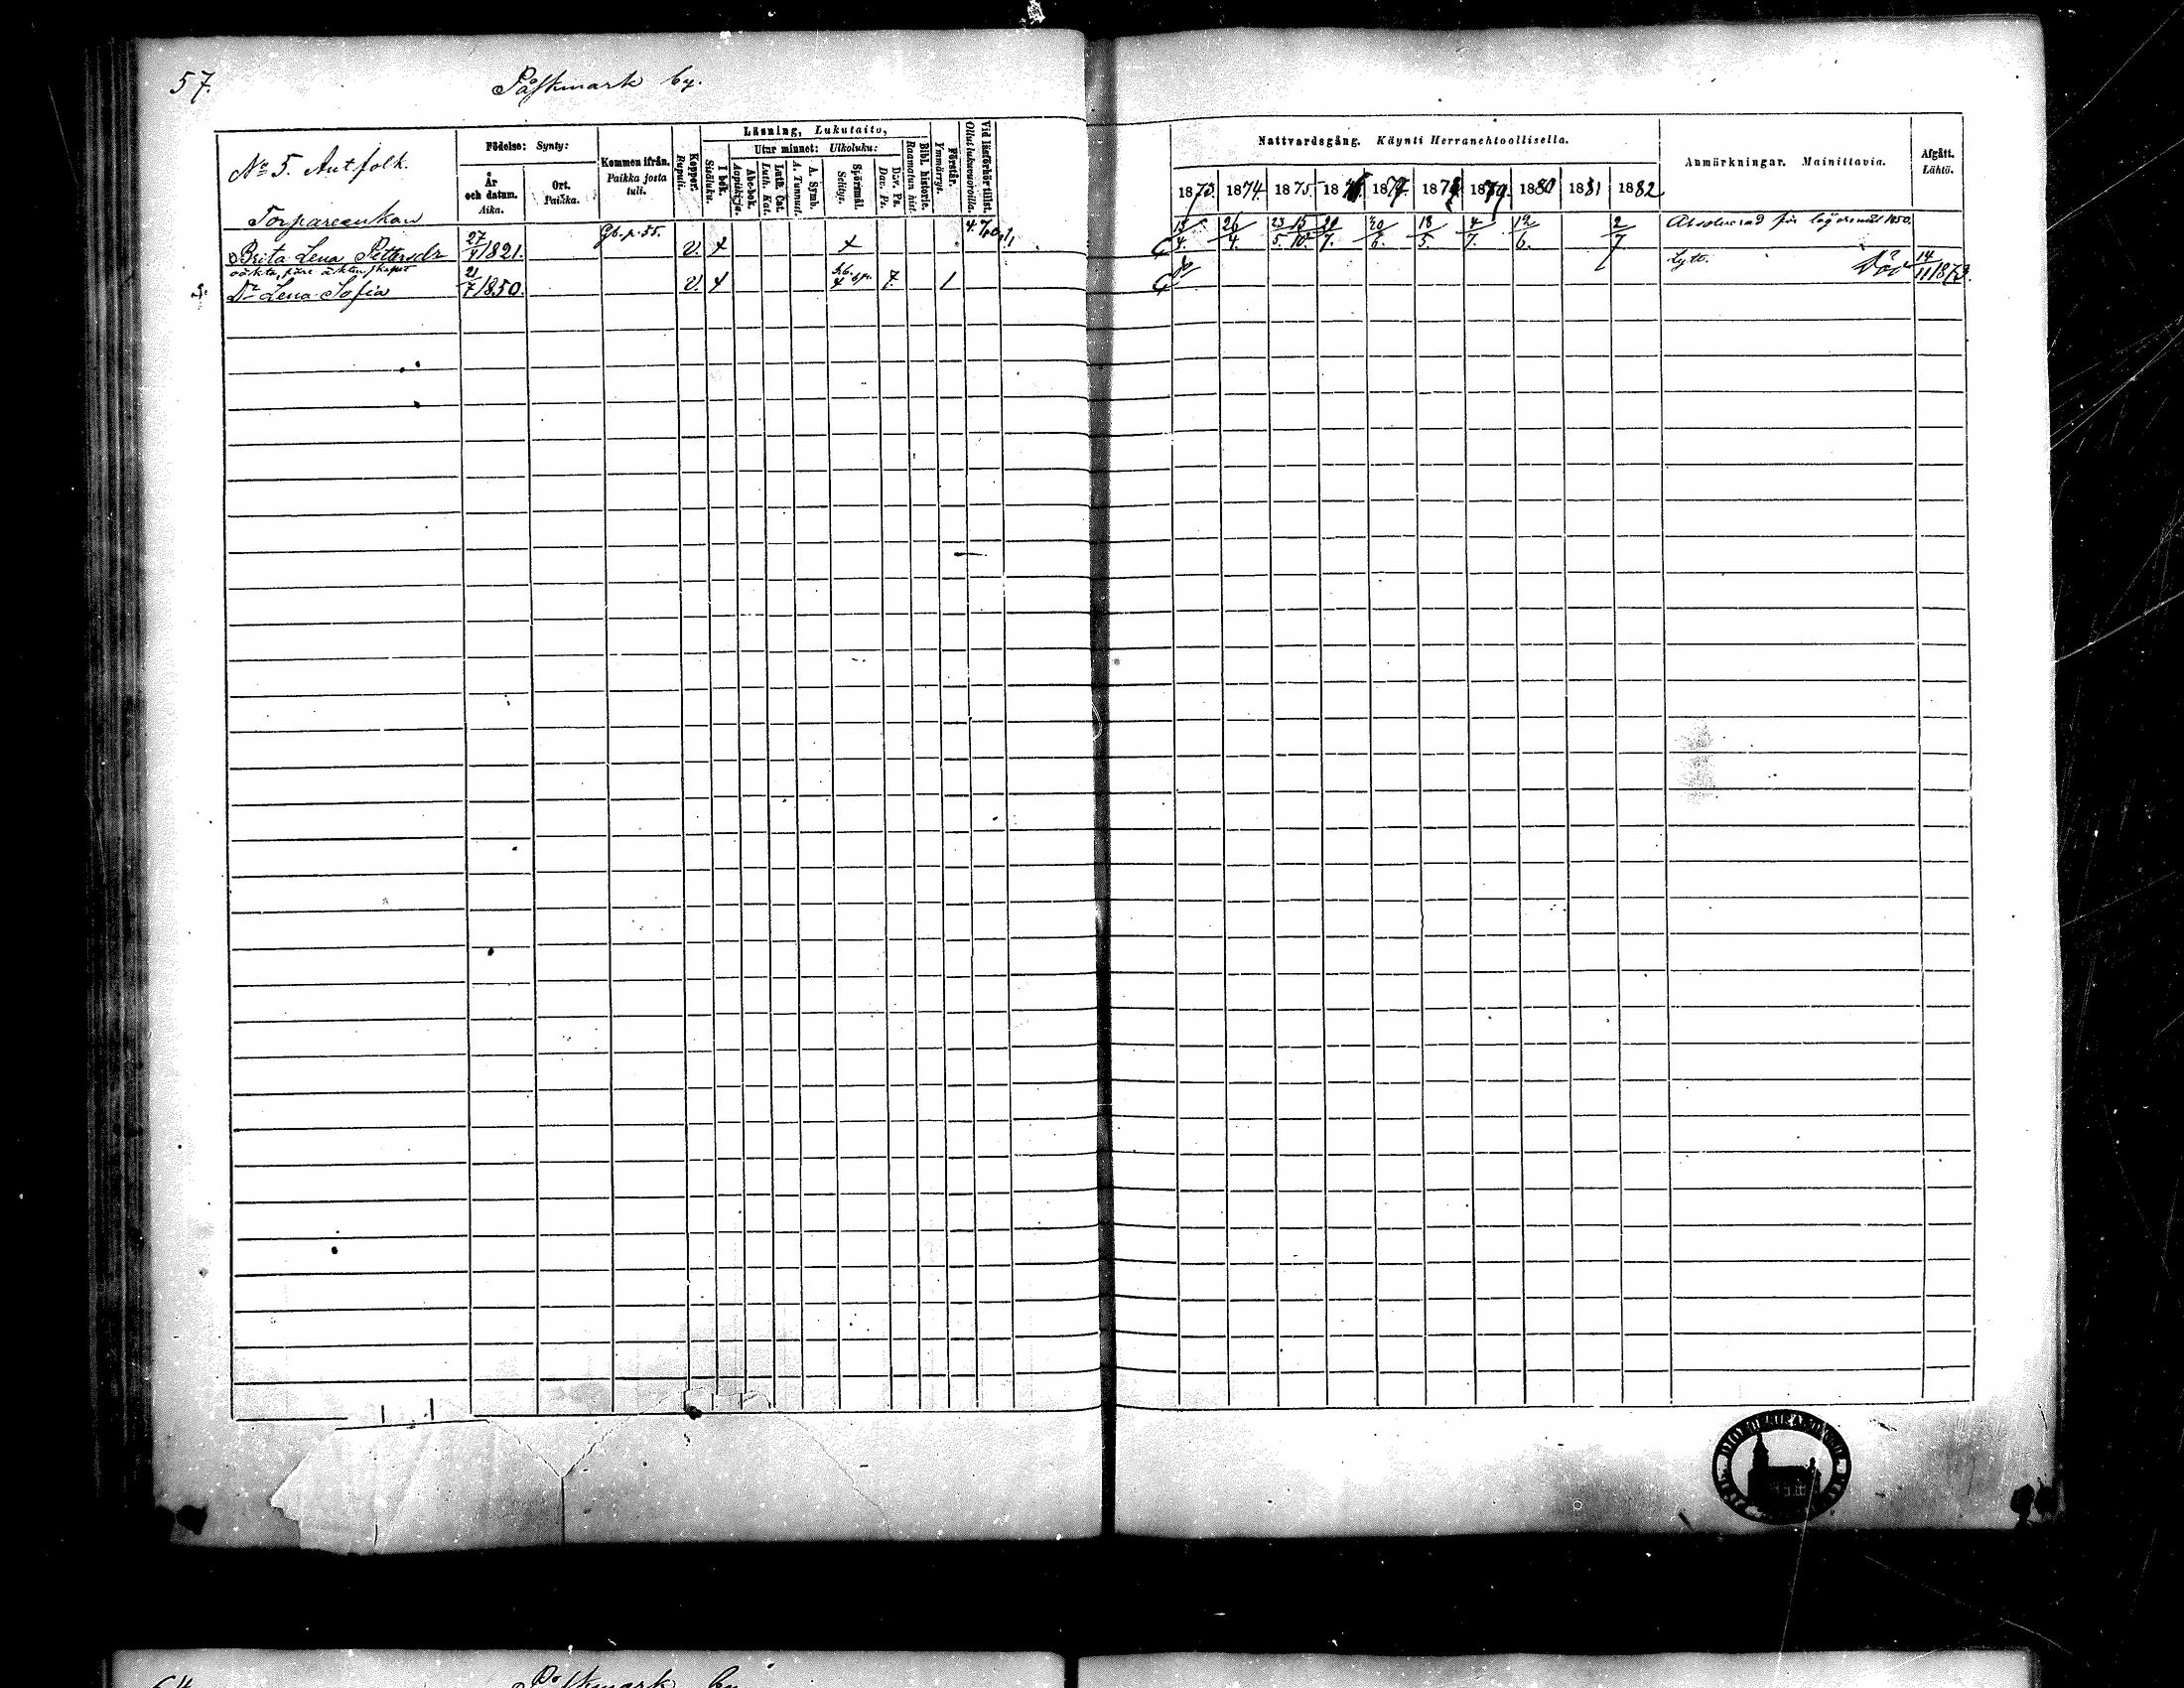 57.
Påskmark by.
Nº 5. Antfolk.
Födelse: Synty:
År och datum. Aika.
Ort. Paikka.
Kommen ifrån. Paikka josta tuli.
Koppor. Rupuli.
Läsning, Lukutaito,
I bok. Sisäluku.
Utur minnet: Ulkoluku:
Abc-bok. Aapiskirja.
Luth. Cat. Luth. Kat.
A. Symb. A. Tunnust.
Spörsmål. Selitys.
Dav. Ps. Dav. Ps.
Bibl. historie. Raamatun hist.
Förstår. Ymmärrys.
Vid läsförhör tillst. Ollut lukuvuoroilla.
Nattvardsgång. Käynti Herranehtoollisella.
1873. 1874. 1875. 1876. 1877. 1878. 1879. 1880 1881 1882
Anmärkningar. Mainittavia.
Afgått. Lähtö.
Torpareenkan
Brita Lena Pettersdr 27/4 1821. Gb. p. 55. v. x x 15/4. 26/4. 23/5. 15/10. 20/6. 18/5. 4/7. 12/6. 2/7 Absolverad för lägersmål 1850.
oäkta, före äktenskapet
Dr Lena Sofia 21/7 1850. v. x 7. 1 Lytt. Död 14/11 1873.
Påskmark by.